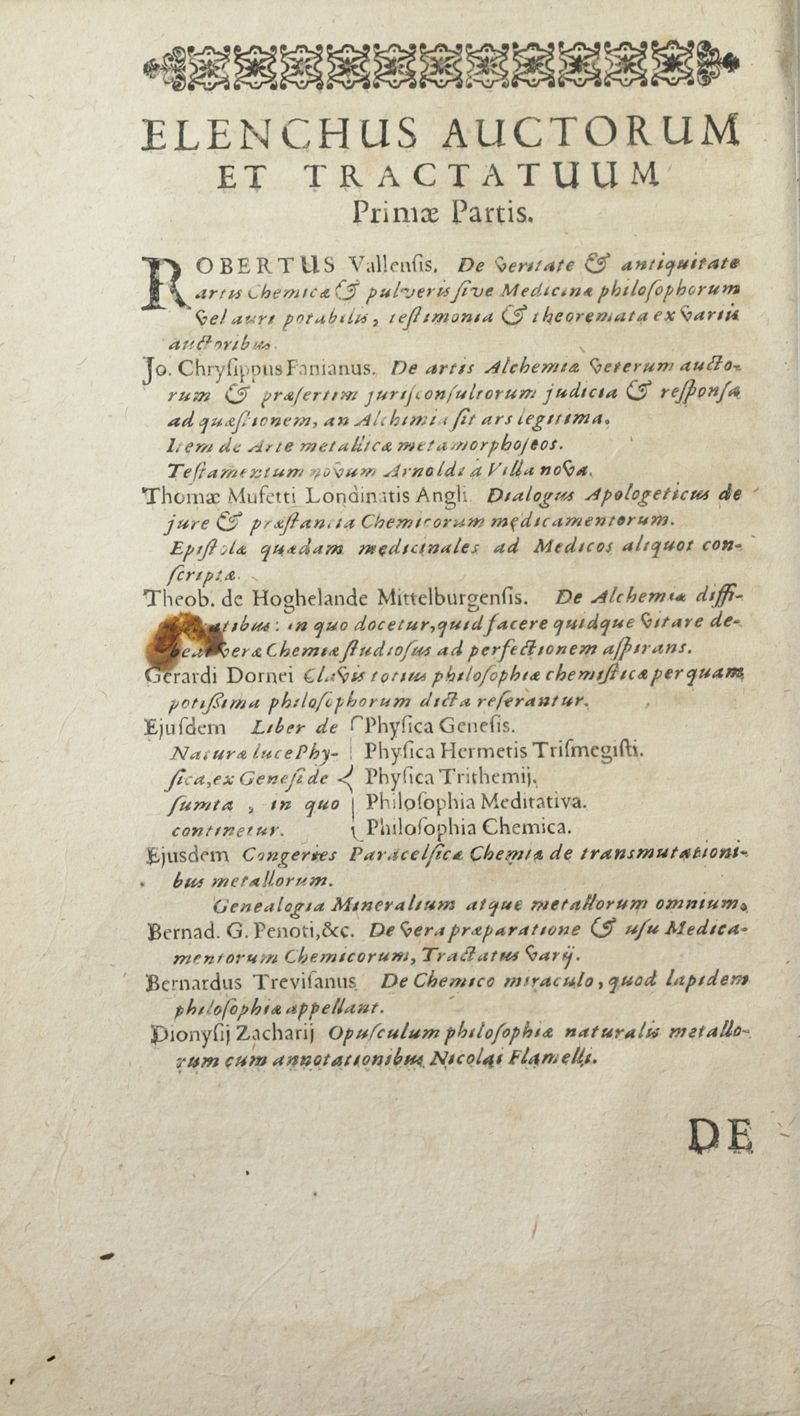 ELENCHUS AUCTORUM
ET TRACTATUUM
Primæ Partis.
ROBERTUS Vallensis, De veritate & antiquitate
artis Chemicæ & pulveris sive Medicinæ philosophorum
vel auri potabilis, testimonia & theoremata ex variis
auctoribus.
Jo. Chrysippus Fanianus. De artis Alchemiæ veterum aucto-
rum & præsertim jurisconsultorum judicia & responsa
ad quæstionem, an Alchimia sit ars legitima.
Item de Arte metallicæ metamorphoseos.
Testamentum novum Arnoldi à Villa nova.
Thomæ Mufetti Londinatis Angli Dialogus Apologeticus de
jure & præstantia Chemicorum medicamentorum.
Epistolæ quædam medicinales ad Medicos aliquot con-
scriptæ.
Theob. de Hoghelande Mittelburgensis. De Alchemiæ diffi-
tibus: in quo docetur, quid facere quidque vitare de-
veræ Chemiæ studiosus ad perfectionem aspirans.
Gerardi Dornei Clavis totius philosophiæ chemisticæ per quam
potissima philosophorum dicta referantur.
Ejusdem Liber de Physica Genesis.
Naturæ luce Phy- Physica Hermetis Trismegisti.
sica, ex Genesi de Physica Trithemij.
sumta, in quo Philosophia Meditativa.
continetur. Philosophia Chemica.
Ejusdem Congeries Paracelsicæ Chemiæ de transmutationi-
bus metallorum.
Genealogia Mineralium atque metallorum omnium.
Bernad. G. Penoti, &c. De vera præparatione & usu Medica-
mentorum Chemicorum, Tractatus varij.
Bernardus Trevisanus De Chemico miraculo, quod lapidem
philosophiæ appellant.
Dionysij Zacharij Opusculum philosophiæ naturalis metallo-
rum cum annotationibus Nicolai Flamelli.
DE